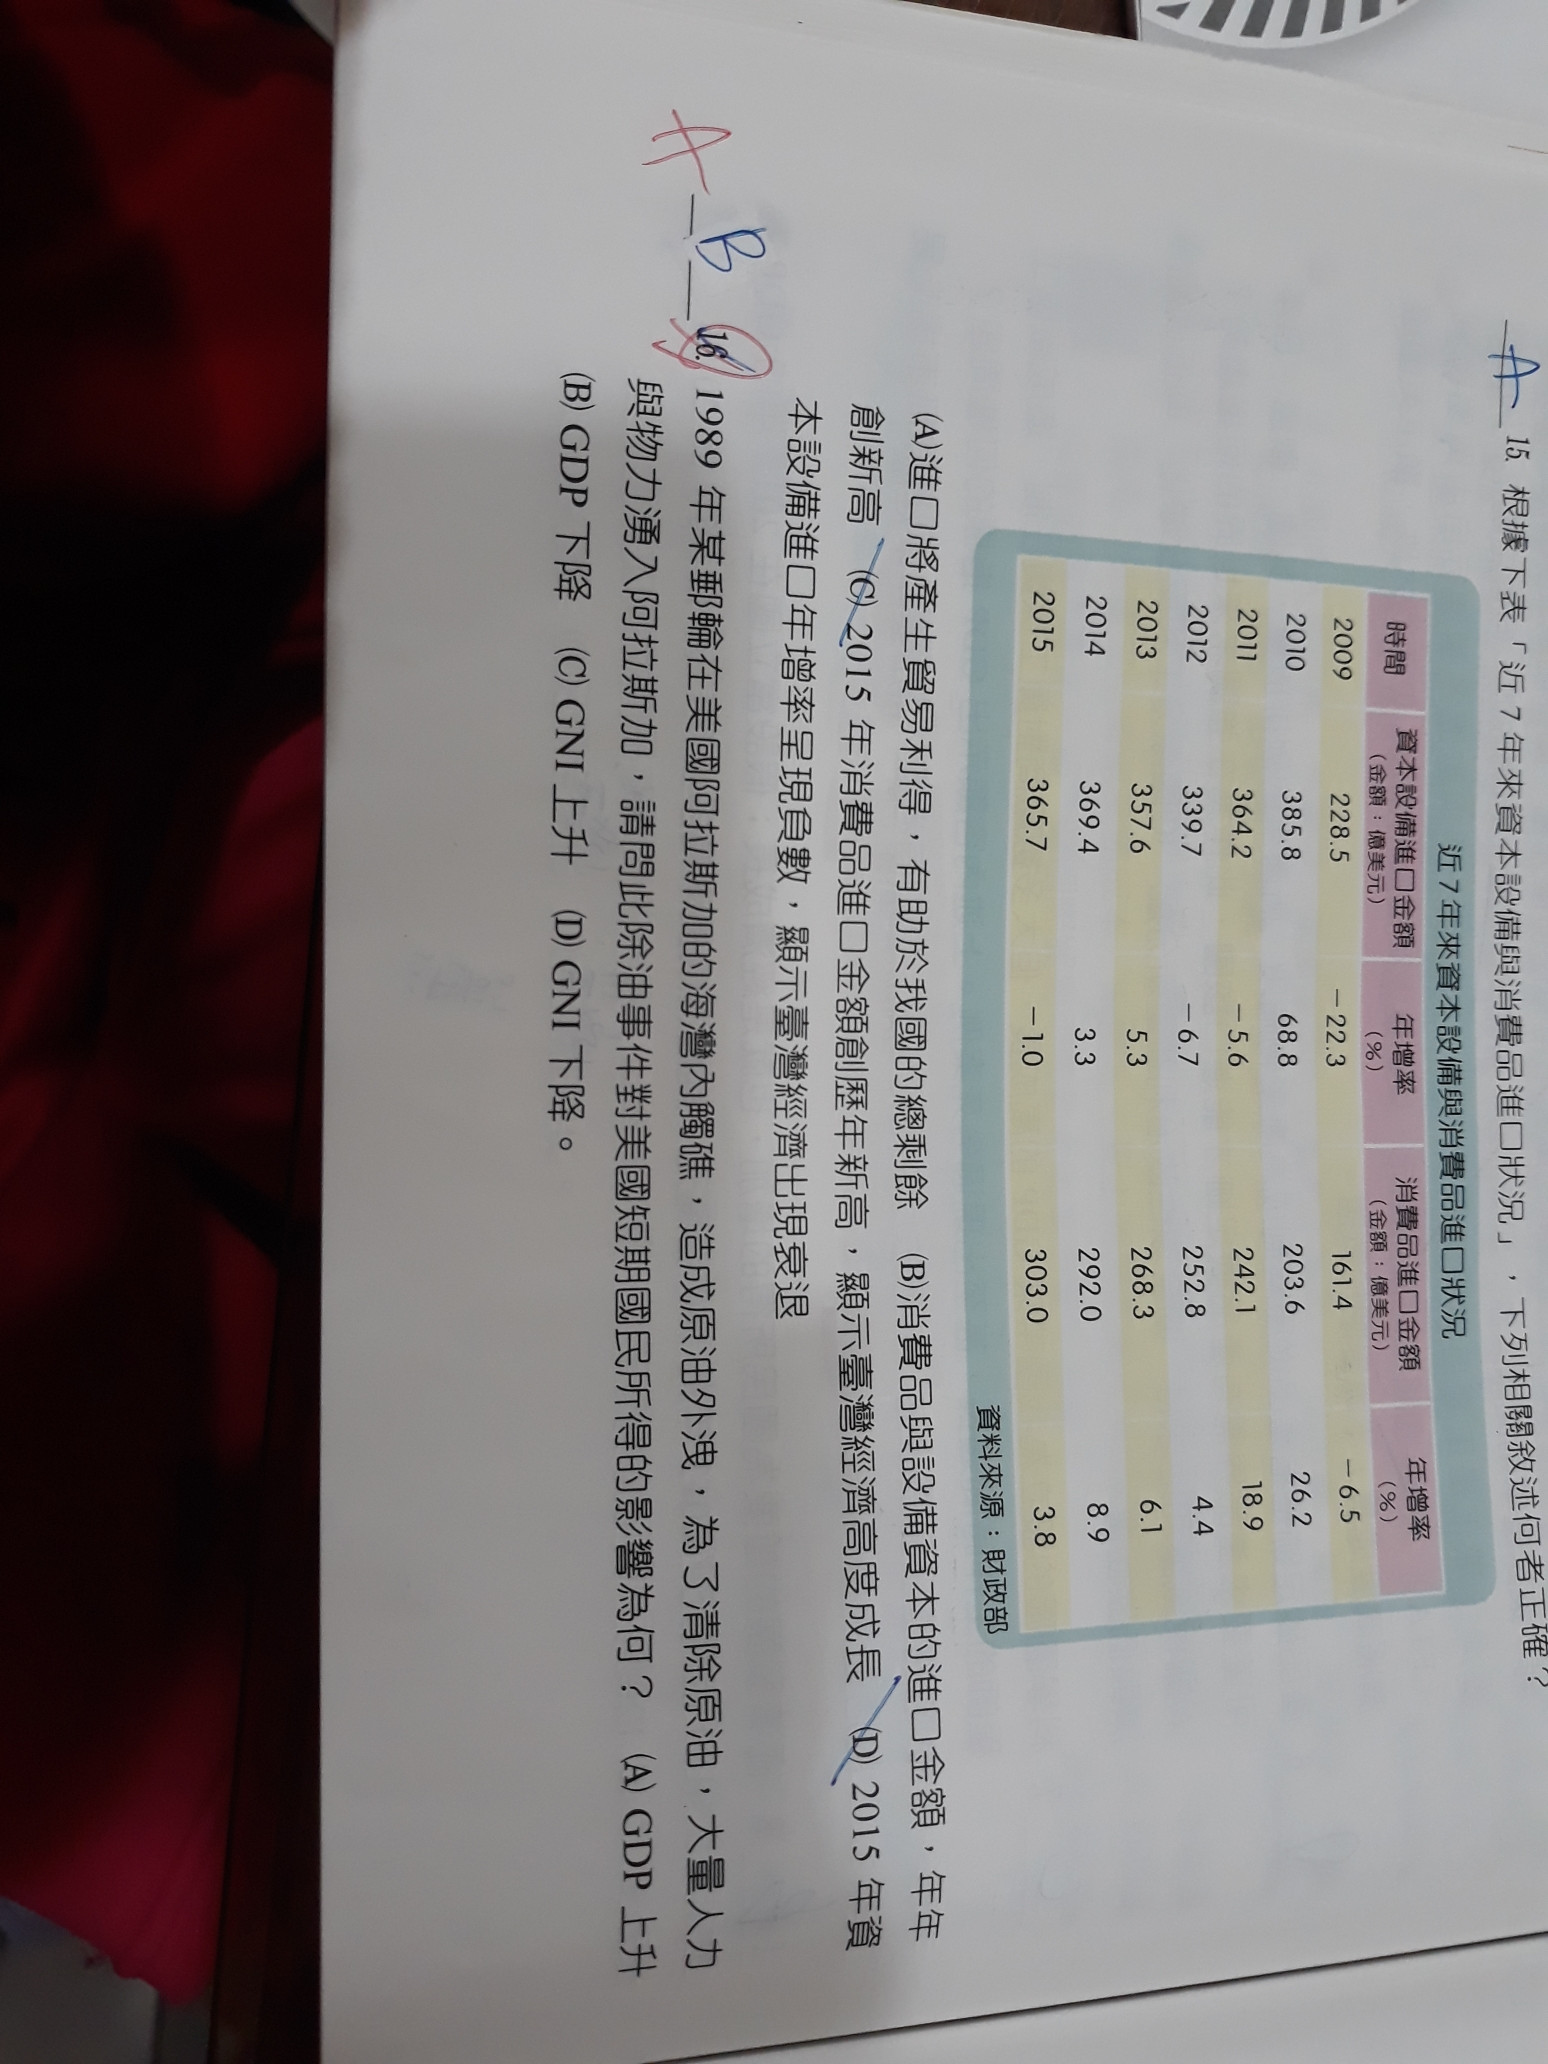 A 15. 根據下表「近 7 年來資本設備與消費品進口狀況」，下列相關敘述何者正確？
近 7 年來資本設備與消費品進口狀況
時間 資本設備進口金額（金額：億美元） 年增率（%） 消費品進口金額（金額：億美元） 年增率（%）
2009 228.5 －22.3 161.4 －6.5
2010 385.8 68.8 203.6 26.2
2011 364.2 －5.6 242.1 18.9
2012 339.7 －6.7 252.8 4.4
2013 357.6 5.3 268.3 6.1
2014 369.4 3.3 292.0 8.9
2015 365.7 －1.0 303.0 3.8
資料來源：財政部
(A)進口將產生貿易利得，有助於我國的總剩餘 (B)消費品與設備資本的進口金額，年年
創新高 (C) 2015 年消費品進口金額創歷年新高，顯示臺灣經濟高度成長 (D) 2015 年資
本設備進口年增率呈現負數，顯示臺灣經濟出現衰退
A B 16. 1989 年某郵輪在美國阿拉斯加的海灣內觸礁，造成原油外洩，為了清除原油，大量人力
與物力湧入阿拉斯加，請問此除油事件對美國短期國民所得的影響為何？ (A) GDP 上升
(B) GDP 下降 (C) GNI 上升 (D) GNI 下降。